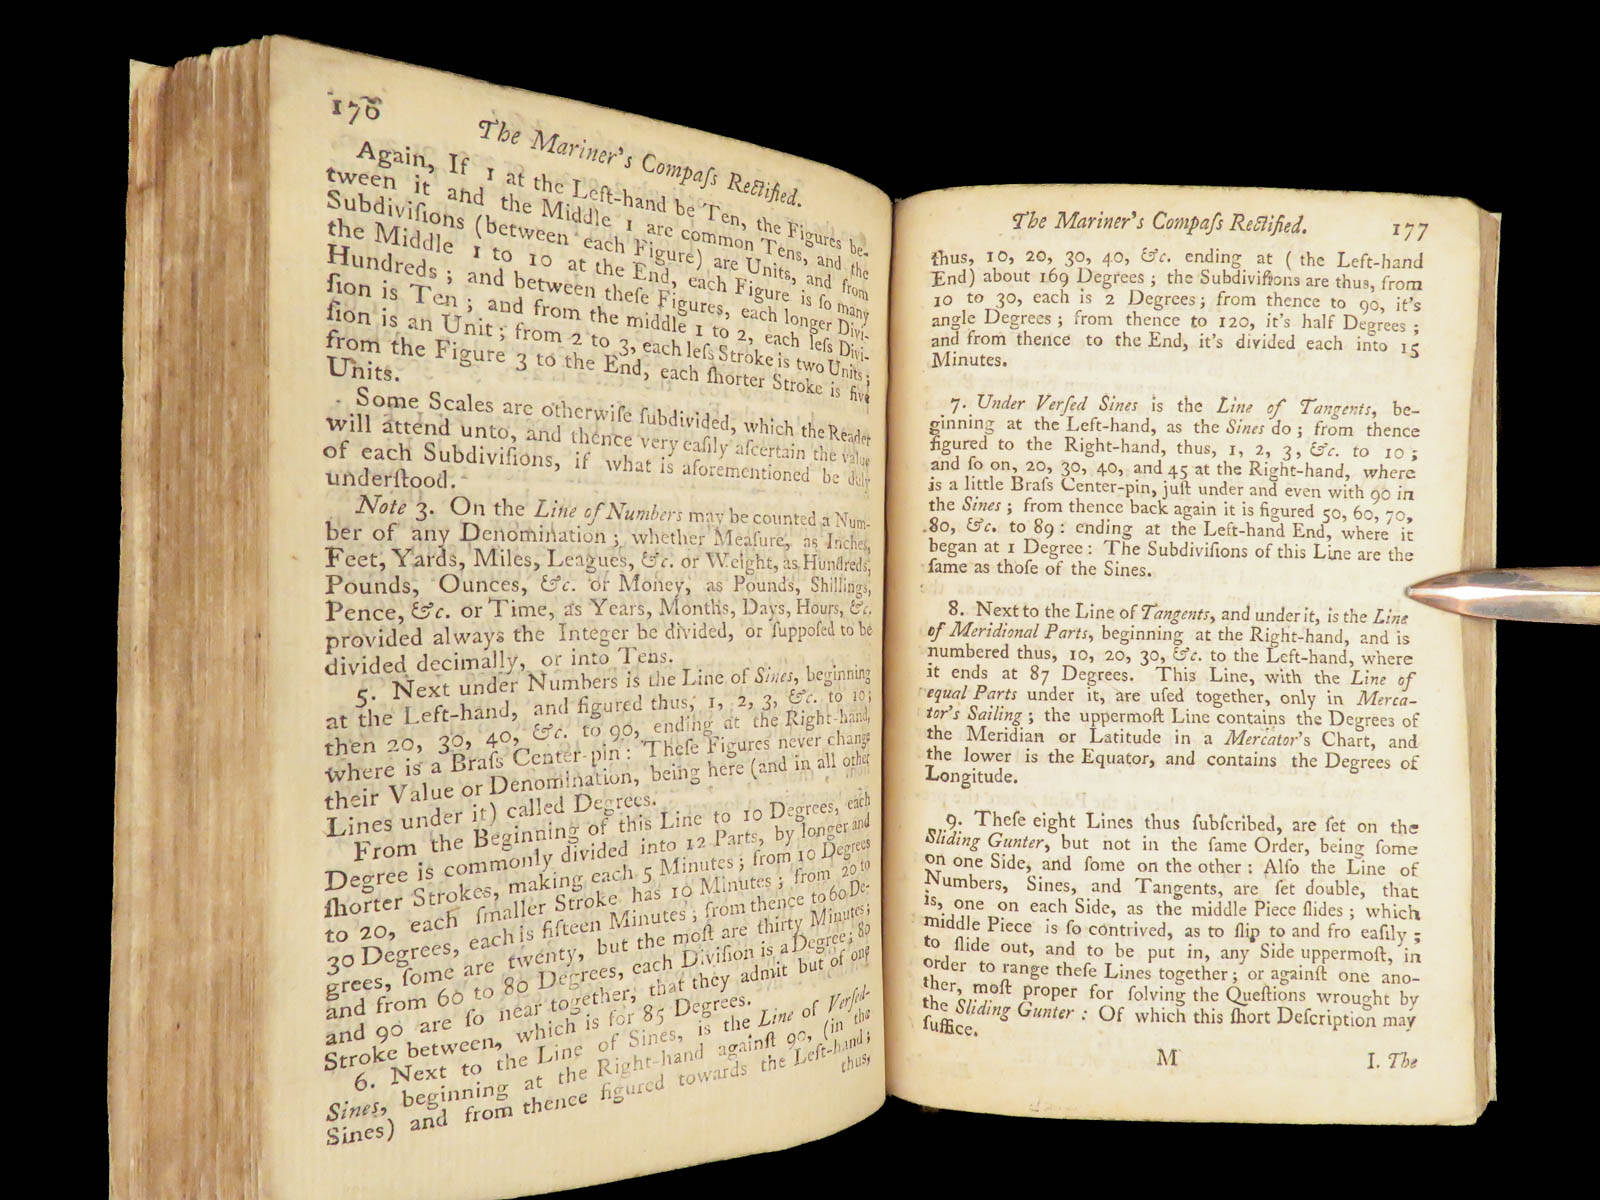 176
The Mariner's Compaſs Rectified.
Again, If 1 at the Left-hand be Ten, the Figures be-
tween it and the Middle 1 are common Tens, and the
Subdiviſions (between each Figure) are Units, and from
the Middle 1 to 10 at the End, each Figure is ſo many
Hundreds; and between theſe Figures, each longer Divi-
ſion is Ten; and from the middle 1 to 2, each leſs Divi-
ſion is an Unit; from 2 to 3, each leſs Stroke is two Units;
from the Figure 3 to the End, each ſhorter Stroke is five
Units.
Some Scales are otherwiſe ſubdivided, which the Reader
will attend unto, and thence very eaſily aſcertain the value
of each Subdiviſions, if what is aforementioned be duly
underſtood.
Note 3. On the Line of Numbers may be counted a Num-
ber of any Denomination; whether Meaſure, as Inches,
Feet, Yards, Miles, Leagues, &c. or Weight, as Hundreds,
Pounds, Ounces, &c. or Money, as Pounds, Shillings,
Pence, &c. or Time, as Years, Months, Days, Hours, &c.
provided always the Integer be divided, or ſuppoſed to be
divided decimally, or into Tens.
5. Next under Numbers is the Line of Sines, beginning
at the Left-hand, and figured thus, 1, 2, 3, &c. to 10;
then 20, 30, 40, &c. to 90, ending at the Right-hand,
where is a Braſs Center-pin: Theſe Figures never change
their Value or Denomination, being here (and in all other
Lines under it) called Degrees.
From the Beginning of this Line to 10 Degrees, each
Degree is commonly divided into 12 Parts, by longer and
ſhorter Strokes, making each 5 Minutes; from 10 Degrees
to 20, each ſmaller Stroke has 10 Minutes; from 20 to
30 Degrees, each is fifteen Minutes; from thence to 60 De-
grees, ſome are twenty, but the moſt are thirty Minutes;
and from 60 to 80 Degrees, each Diviſion is a Degree; 80
and 90 are ſo near together, that they admit but of one
Stroke between, which is for 85 Degrees.
6. Next to the Line of Sines, is the Line of Verſed-
Sines, beginning at the Right-hand againſt 90, (in the
Sines) and from thence figured towards the Left-hand;
thus,
The Mariner's Compaſs Rectified.
177
thus, 10, 20, 30, 40, &c. ending at ( the Left-hand
End) about 169 Degrees; the Subdiviſions are thus, from
10 to 30, each is 2 Degrees; from thence to 90, it's
angle Degrees; from thence to 120, it's half Degrees;
and from thence to the End, it's divided each into 15
Minutes.
7. Under Verſed Sines is the Line of Tangents, be-
ginning at the Left-hand, as the Sines do; from thence
figured to the Right-hand, thus, 1, 2, 3, &c. to 10;
and ſo on, 20, 30, 40, and 45 at the Right-hand, where
is a little Braſs Center-pin, juſt under and even with 90 in
the Sines; from thence back again it is figured 50, 60, 70,
80, &c. to 89: ending at the Left-hand End, where it
began at 1 Degree: The Subdiviſions of this Line are the
ſame as thoſe of the Sines.
8. Next to the Line of Tangents, and under it, is the Line
of Meridional Parts, beginning at the Right-hand, and is
numbered thus, 10, 20, 30, &c. to the Left-hand, where
it ends at 87 Degrees. This Line, with the Line of
equal Parts under it, are uſed together, only in Merca-
tor's Sailing; the uppermoſt Line contains the Degrees of
the Meridian or Latitude in a Mercator's Chart, and
the lower is the Equator, and contains the Degrees of
Longitude.
9. Theſe eight Lines thus ſubſcribed, are ſet on the
Sliding Gunter, but not in the ſame Order, being ſome
on one Side, and ſome on the other: Alſo the Line of
Numbers, Sines, and Tangents, are ſet double, that
is, one on each Side, as the middle Piece ſlides; which
middle Piece is ſo contrived, as to ſlip to and fro eaſily;
to ſlide out, and to be put in, any Side uppermoſt, in
order to range theſe Lines together; or againſt one ano-
ther, moſt proper for ſolving the Queſtions wrought by
the Sliding Gunter: Of which this ſhort Deſcription may
ſuffice.
M
I. The